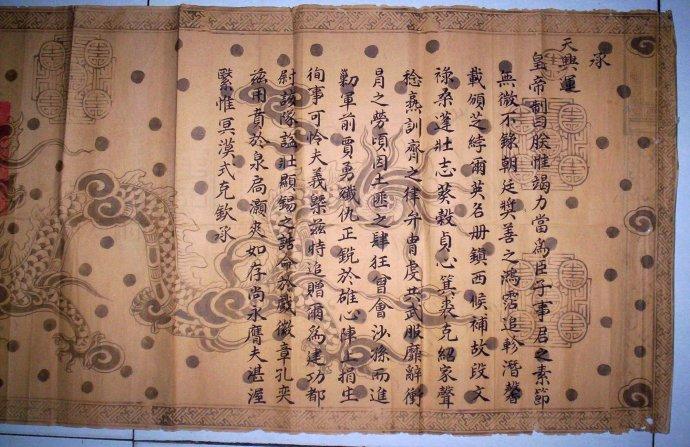 承
天興運
皇帝制曰朕惟竭力當為臣子事君之素節
無微不錄朝廷奬善之鴻霑追軫潛馨
載頒芝綍爾英名册鎮西候補故段文
祿桑蓬壯志葵榖貞心箕裘克紹家聲
稔燕訓齊之律弁冑虎共武服靡辭衝
冐之勞頃因土匪之肆狂曾會沙孫而進
勦軍前賈勇殲仇正銳於雄心陣上捐生
徇事可怜夫義槩茲時追贈爾為建功都
尉該隊諡壯顯錫之誥命於戱徽章孔奕
茲用賁於泉扃灝爽如存尚永膺夫湛渥
繄惟冥漠式克欽承